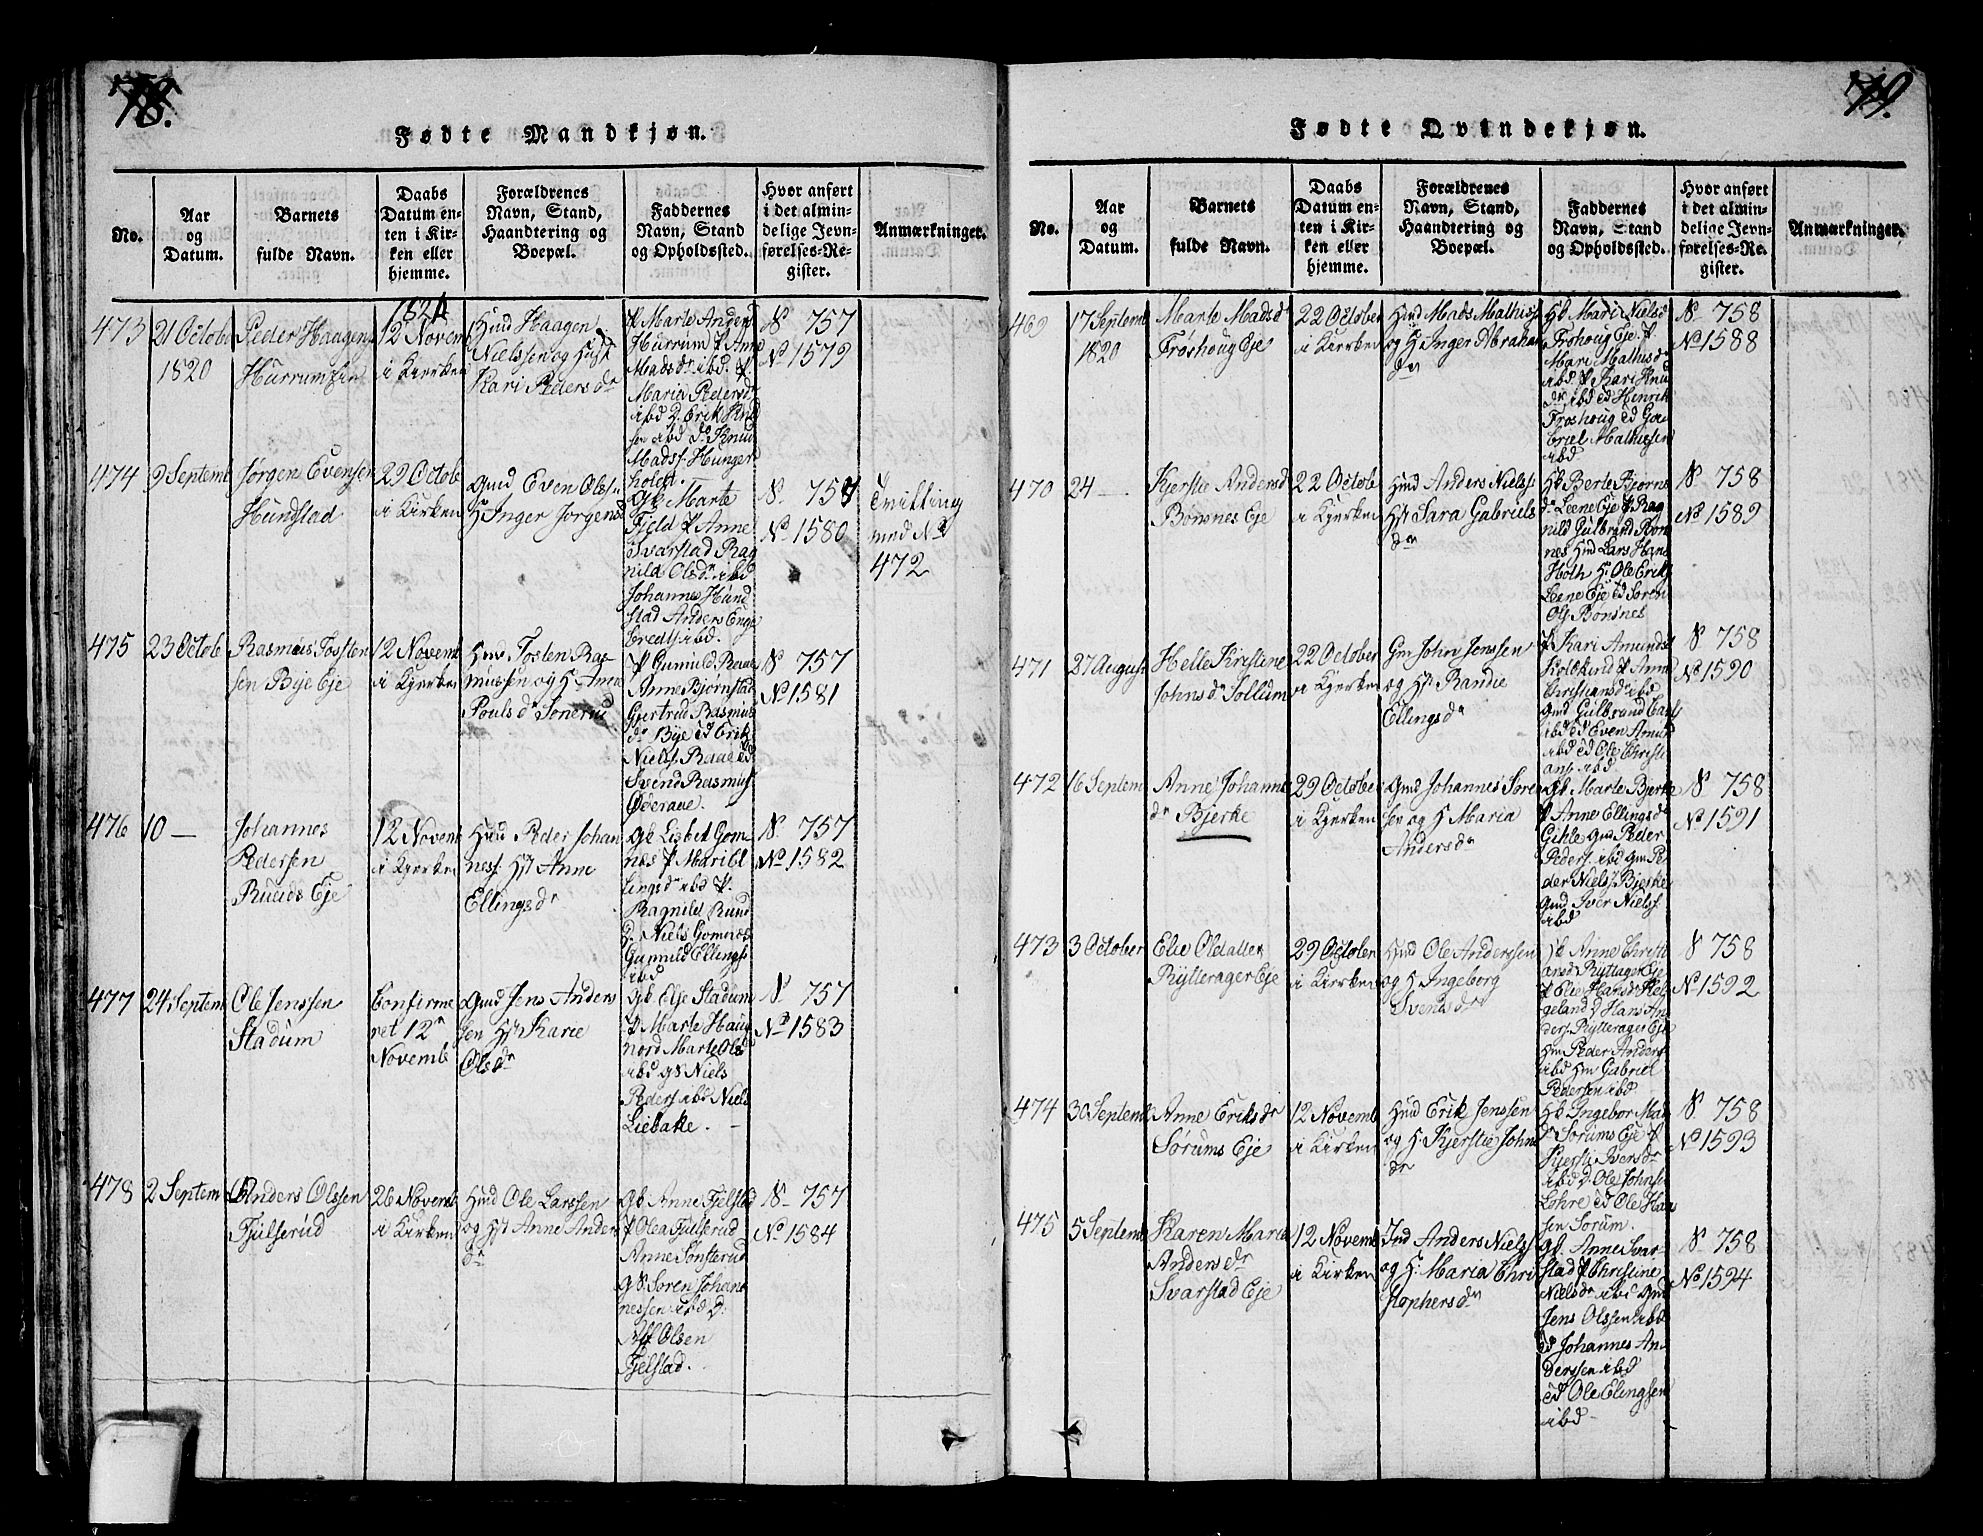 78.
Fødte Mandkjøn.
No.
Aar
og
Datum.
Barnets
fulde Navn.
Daabs
Datum en-
ten i Kir-
ken eller
hjemme.
Forældrenes
Navn, Stand,
Haandtering og
Boepæl.
Faddernes
Navn, Stand
og Opholdssted.
Hvor anført
i det almin-
delige Jevn-
førelses-Re-
gister.
Anmærkninger.
473
21 Octobr
1820
Peder Haagens
Hurrumfin
1821
12 Novemb
i Kirken
Hmd Haagen
Nielssen og Hust
Kari Pedersdr
P Marte Anders
Hurrum P Anne
Madsdr ibd. P
Marie Pedersdr
ibd D. Erik Knud
sen ibd Do Knud
Madss. Hunger
holdt.
N 757
No 1579
474
9 Septemb
Jørgen Evensen
Hundstad
29 Octobr
i Kirken
Gmd Even Olss.
H Inger Jørgensd
Gk Marte
Fjeld P Anne
Svarstad Rag
nild Olsdr ibd
Johannes Hund
stad Anders Enge
bredts ibd.
N. 757
No 1580
Tvilling
med No
472
475
23 Octob
Rasmus Tosten
sen Bye Eje
12 Novemb
i Kirken
Hmd Tosten Ras
mussen og H. Anne
Poulsdr Sonerud
P Gunuld Raae
Anne Bjørnstad
Gjertrud Rasmus
dr Bye Ed Erik
Nielss. Raae Ed
Svend Rasmuss
Oderaae.
N 757
No 1581
476
10 —
Johannes
Pedersen
Ruuds Eje
12 Novemb
i Kirken
Hmd Peder Johan
ness. Hst Anne
Ellingsdr
Gk Lisbet Gom
næs P Marild
lingsdr ibd P.
Ragnild Ruud
D. Niels Gomnæs
Gunnuld Ellings
ibd
N. 757
No 1582
477
24 Septem
Ole Jenssen
Stadum
Confirme
ret 12te
Novemb
Gmd Jens Anders
sen Hst Karie
Olsdr
Gk Else Stadum
P Marte Haug
nord Marte Olsd
ibd G8 Niels
Peders ibd Niels
Liebakke. —
N 757
No 1583
478
2 Septem
Anders Olssen
Fjulserud
26 Novemb
i Kirken
Hmd Ole Larssen
og Hst Anne Anders
dr
Gk Anne Fjelstad
P Olea Fjulserud
Anne Sonsterud
G8 Søren Johan
nessen ibd D.
Alf Olsen
Fjelstad.
N 757
No 1584
79.
Fødte Qvindekjøn.
No.
Aar
og
Datum.
Barnets
fulde Navn.
Daabs
Datum en-
ten i Kir-
ken eller
hjemme.
Forældrenes
Navn, Stand,
Haandtering og
Boepæl.
Faddernes
Navn, Stand
og Opholdssted.
Hvor anført
i det almin-
delige Jevn-
førelses-Re-
gister.
Anmærkninger.
469
17 Septemb
1820
Marte Madsd
Froshoug Eje
22 Octobr
i Kirken
Hmd Mads Mathiss
og H Inger Abraha
dr
Hk Mari Nielsd
Froshoug Eje P
Mari Mathisdr
ibd P Kari Knu
dr ibd Ed Henrik
Froshoug Ed Ga
briel Mathissen
ibd
N 758
No 1588
470
24 —
Kjerstie Andersd
Bonsnes Eje
22 Octob
i Kirken
Hmd Anders Nielss
Hst Sara Gabriels
dr
Hk Berte Bjørns
dr Leene Eje P Rag
nild Gulbrand Bons
nes Hmd Lars Hans
Hoth H. Ole Eriks
Leene Eje Ed Søren
Ols Bonsnes
N 758
No 1589
471
27 August
Helle Kirstine
Johnsdr Sollum
22 October
i Kirken
Gm John Jenssen
og Hst Randie
Ellingsdr
P Kari Amunds
Koldkind P Anne
Christiansdr ibd
Gmd Gulbrand Carls
ibd Ed Even Amund
ibd Ed Ole Christi
ans ibd
N 758
No 1590
472
16 Septem
Anne Johanne
dr Bjerke
29 October
i Kirken
Gmd Johannes Søre
sen og H Maria
Andersdr
Gk Marte Bjerke
P Anne Ellingsdr
Gihle Gmd Peder
Peders. ibd Gm Pe
der Nielss Bjerke
Gmd Iver Nielss
ibd
N 758
No 1591
473
3 October
Elie Oldatter
Rytterager Eje
29 October
i Kirken
Hmd Ole Anderssen
og H Ingeborg
Svendsdr
Hk Anne Christi
ansd Ryttager Eje
P Elie Hansd Hel
geland D Hans An
ders. Rytterager Eje
Hm Peder Anders
ibd Hm Gabriel
Pedersen ibd
N 758
No 1592
474
30 Septemb
Anne Eriksdr
Sørums Eje
12 Novemb
i Kirken
Hmd Erik Jenssen
og H. Kjerstie Johns
dr
Hk Ingebor Mad
dr Sørums Eje P
Kjersti Iversdr
ibd D. Ole Johnsen
Lohre Ed Ole Han
sen Sorum.
N 758
No 1593
475
5 Septemb
Karen Marie
Andersdr
Svarstad Eje
12 Novemb
i Kirken
Ind Anders Nielss
og H. Maria Chri
stophersdr
Gk. Anne Svar-
stad P Christine
Nielsdr ibd Gmd
Jens Olssen ibd
Ed Johannes An
derssen ibd
Ed Ole Elingsen
ibd —
N 758
No 1594